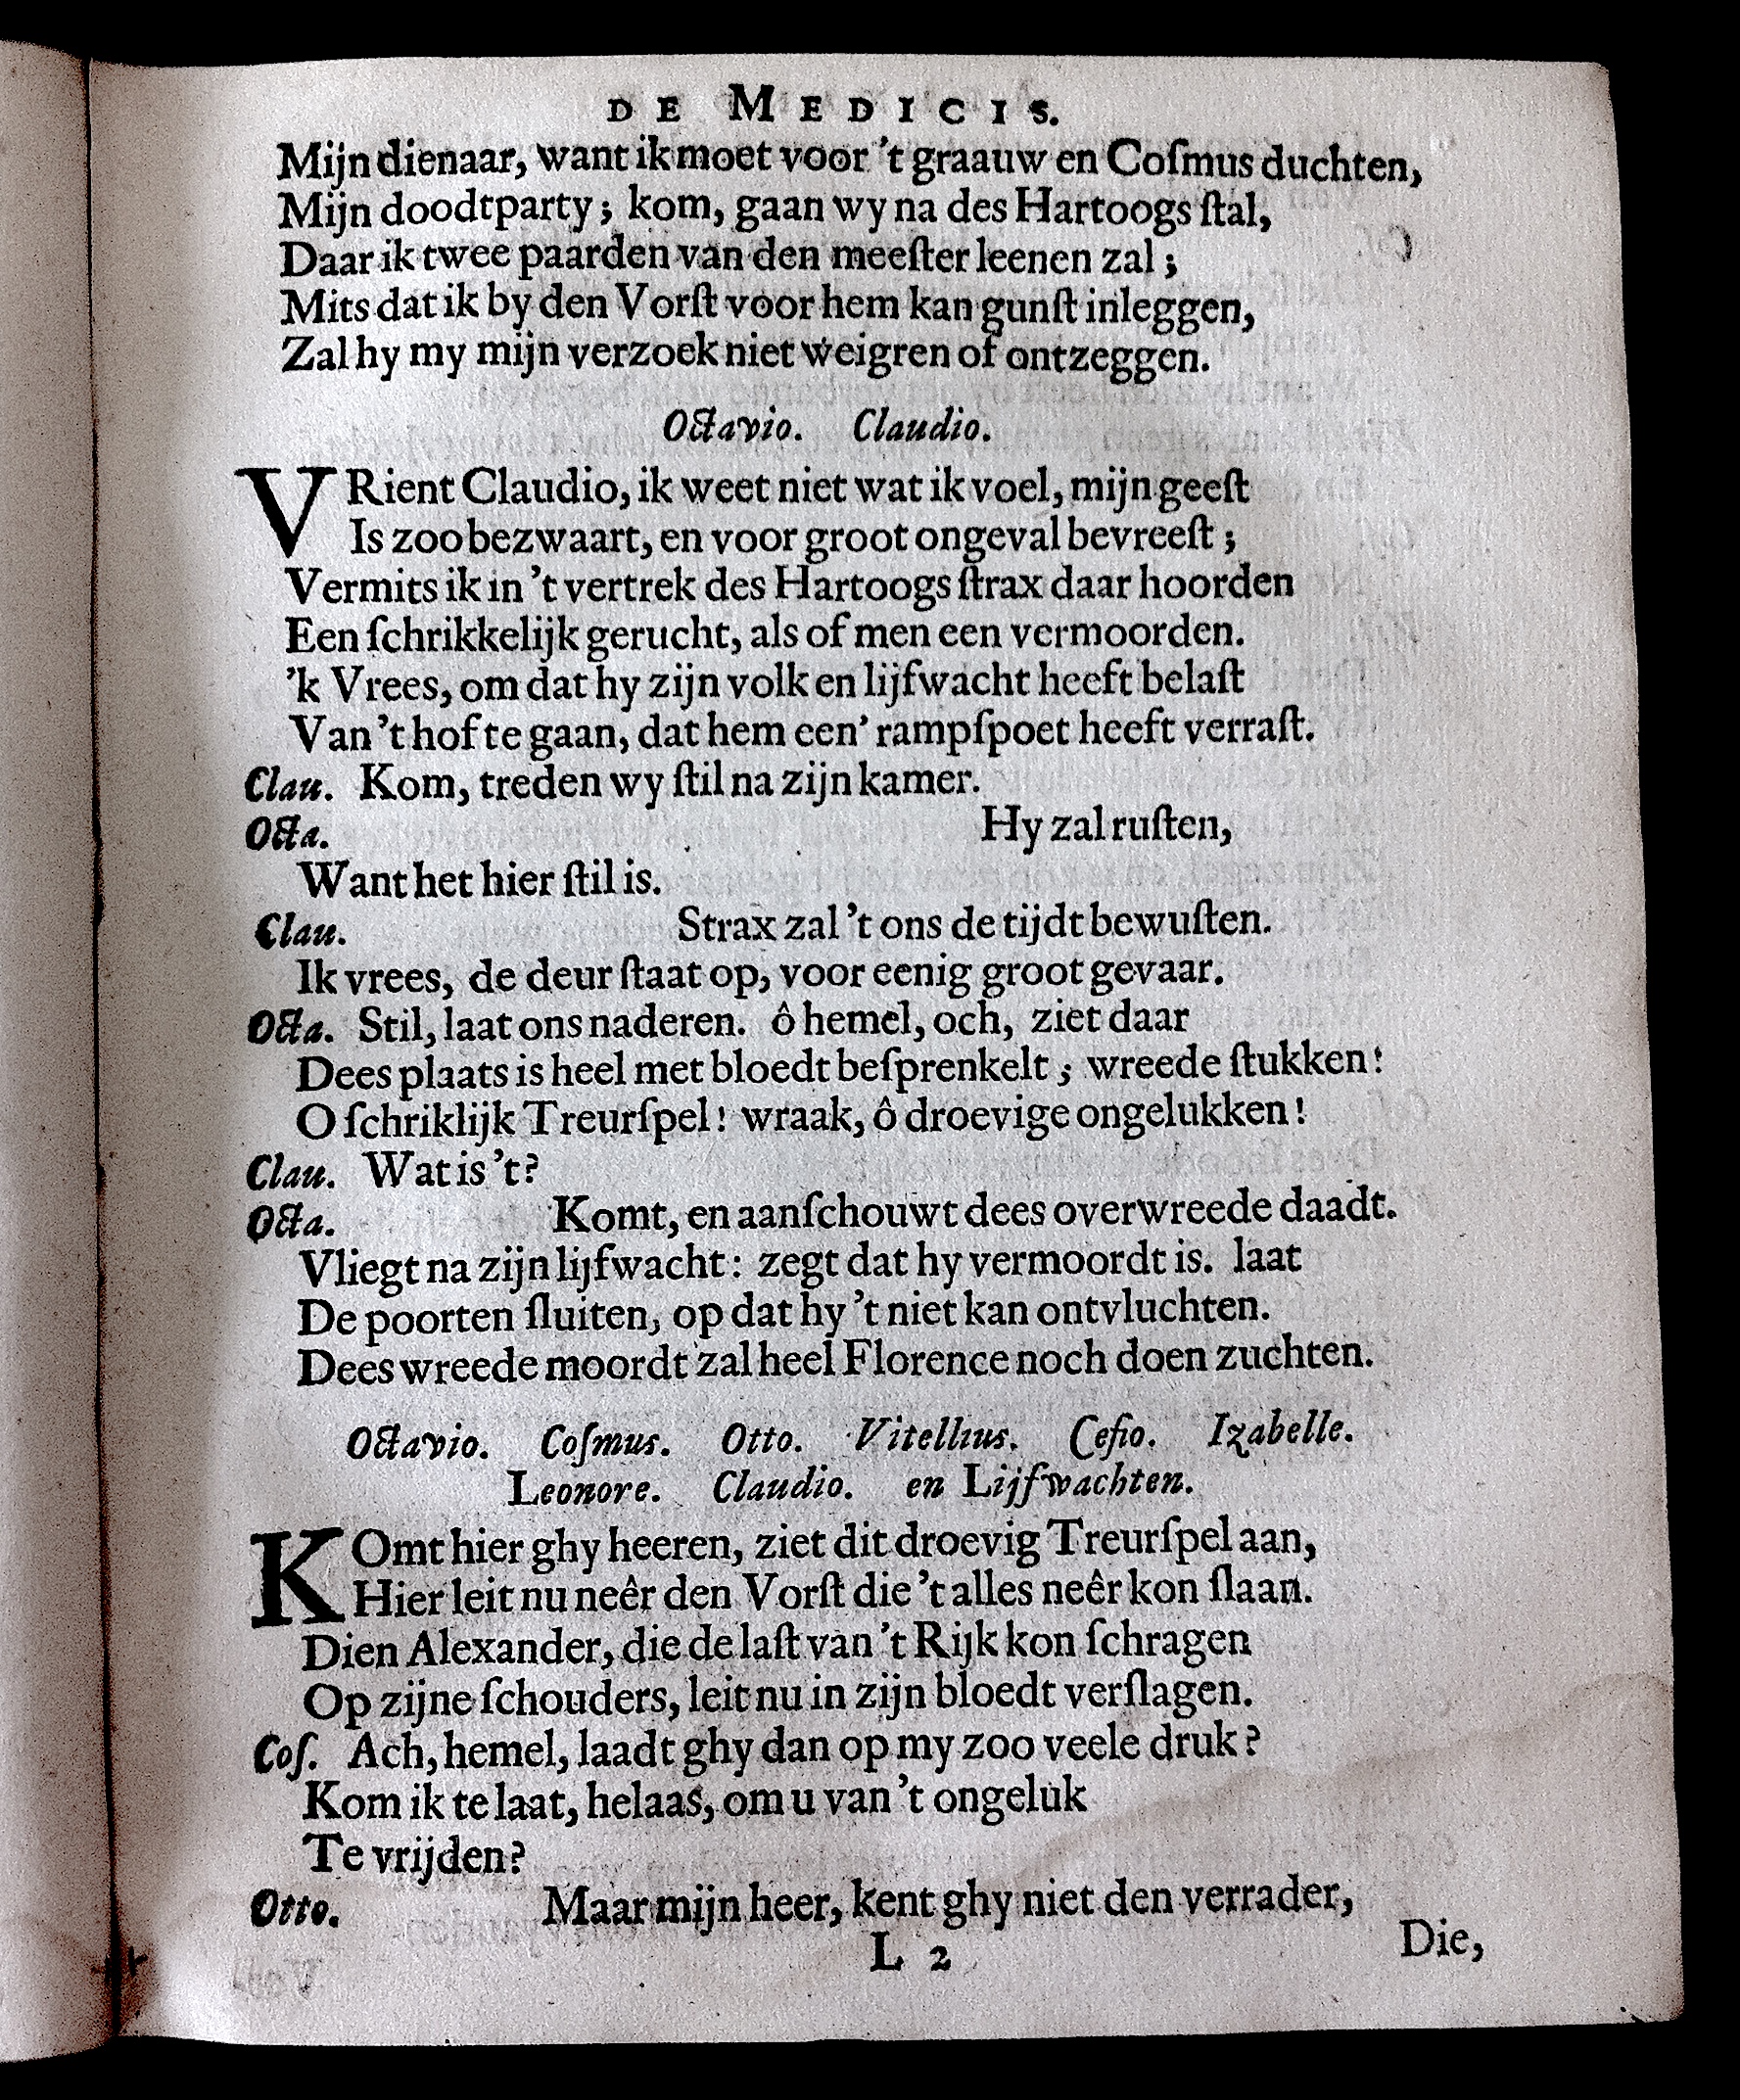 DE MEDICIS.
Mijn dienaar, want ik moet voor 't graauw en Coſmus duchten,
Mijn doodtparty; kom, gaan wy na des Hartoogs ſtal,
Daar ik twee paarden van den meeſter leenen zal;
Mits dat ik by den Vorſt voor hem kan gunſt inleggen,
Zal hy my mijn verzoek niet weigren of ontzeggen.
Octavio. Claudio.
VRient Claudio, ik weet niet wat ik voel, mijn geeſt
Is zoo bezwaart, en voor groot ongeval bevreeſt;
Vermits ik in 't vertrek des Hartoogs ſtrax daar hoorden
Een ſchrikkelijk gerucht, als of men een vermoorden.
'k Vrees, om dat hy zijn volk en lijfwacht heeft belaſt
Van 't hof te gaan, dat hem een' rampſpoet heeft verraſt.
Clau. Kom, treden wy ſtil na zijn kamer.
Octa. Hy zal ruſten,
Want het hier ſtil is.
Clau. Strax zal 't ons de tijdt bewuſten.
Ik vrees, de deur ſtaat op, voor eenig groot gevaar.
Octa. Stil, laat ons naderen. ô hemel, och, ziet daar
Dees plaats is heel met bloedt beſprenkelt; wreede ſtukken!
O ſchriklijk Treurſpel! wraak, ô droevige ongelukken!
Clau. Wat is 't?
Octa. Komt, en aanſchouwt dees overwreede daadt.
Vliegt na zijn lijfwacht: zegt dat hy vermoordt is. laat
De poorten ſluiten, op dat hy 't niet kan ontvluchten.
Dees wreede moordt zal heel Florence noch doen zuchten.
Octavio. Coſmus. Otto. Vitellius. Ceſio. Izabelle.
Leonore. Claudio. en Lijfwachten.
KOmt hier ghy heeren, ziet dit droevig Treurſpel aan,
Hier leit nu neêr den Vorſt die 't alles neêr kon ſlaan.
Dien Alexander, die de laſt van 't Rijk kon ſchragen
Op zijne ſchouders, leit nu in zijn bloedt verſlagen.
Coſ. Ach, hemel, laadt ghy dan op my zoo veele druk?
Kom ik te laat, helaas, om u van 't ongeluk
Te vrijden?
Otto. Maar mijn heer, kent ghy niet den verrader,
L 2
Die,